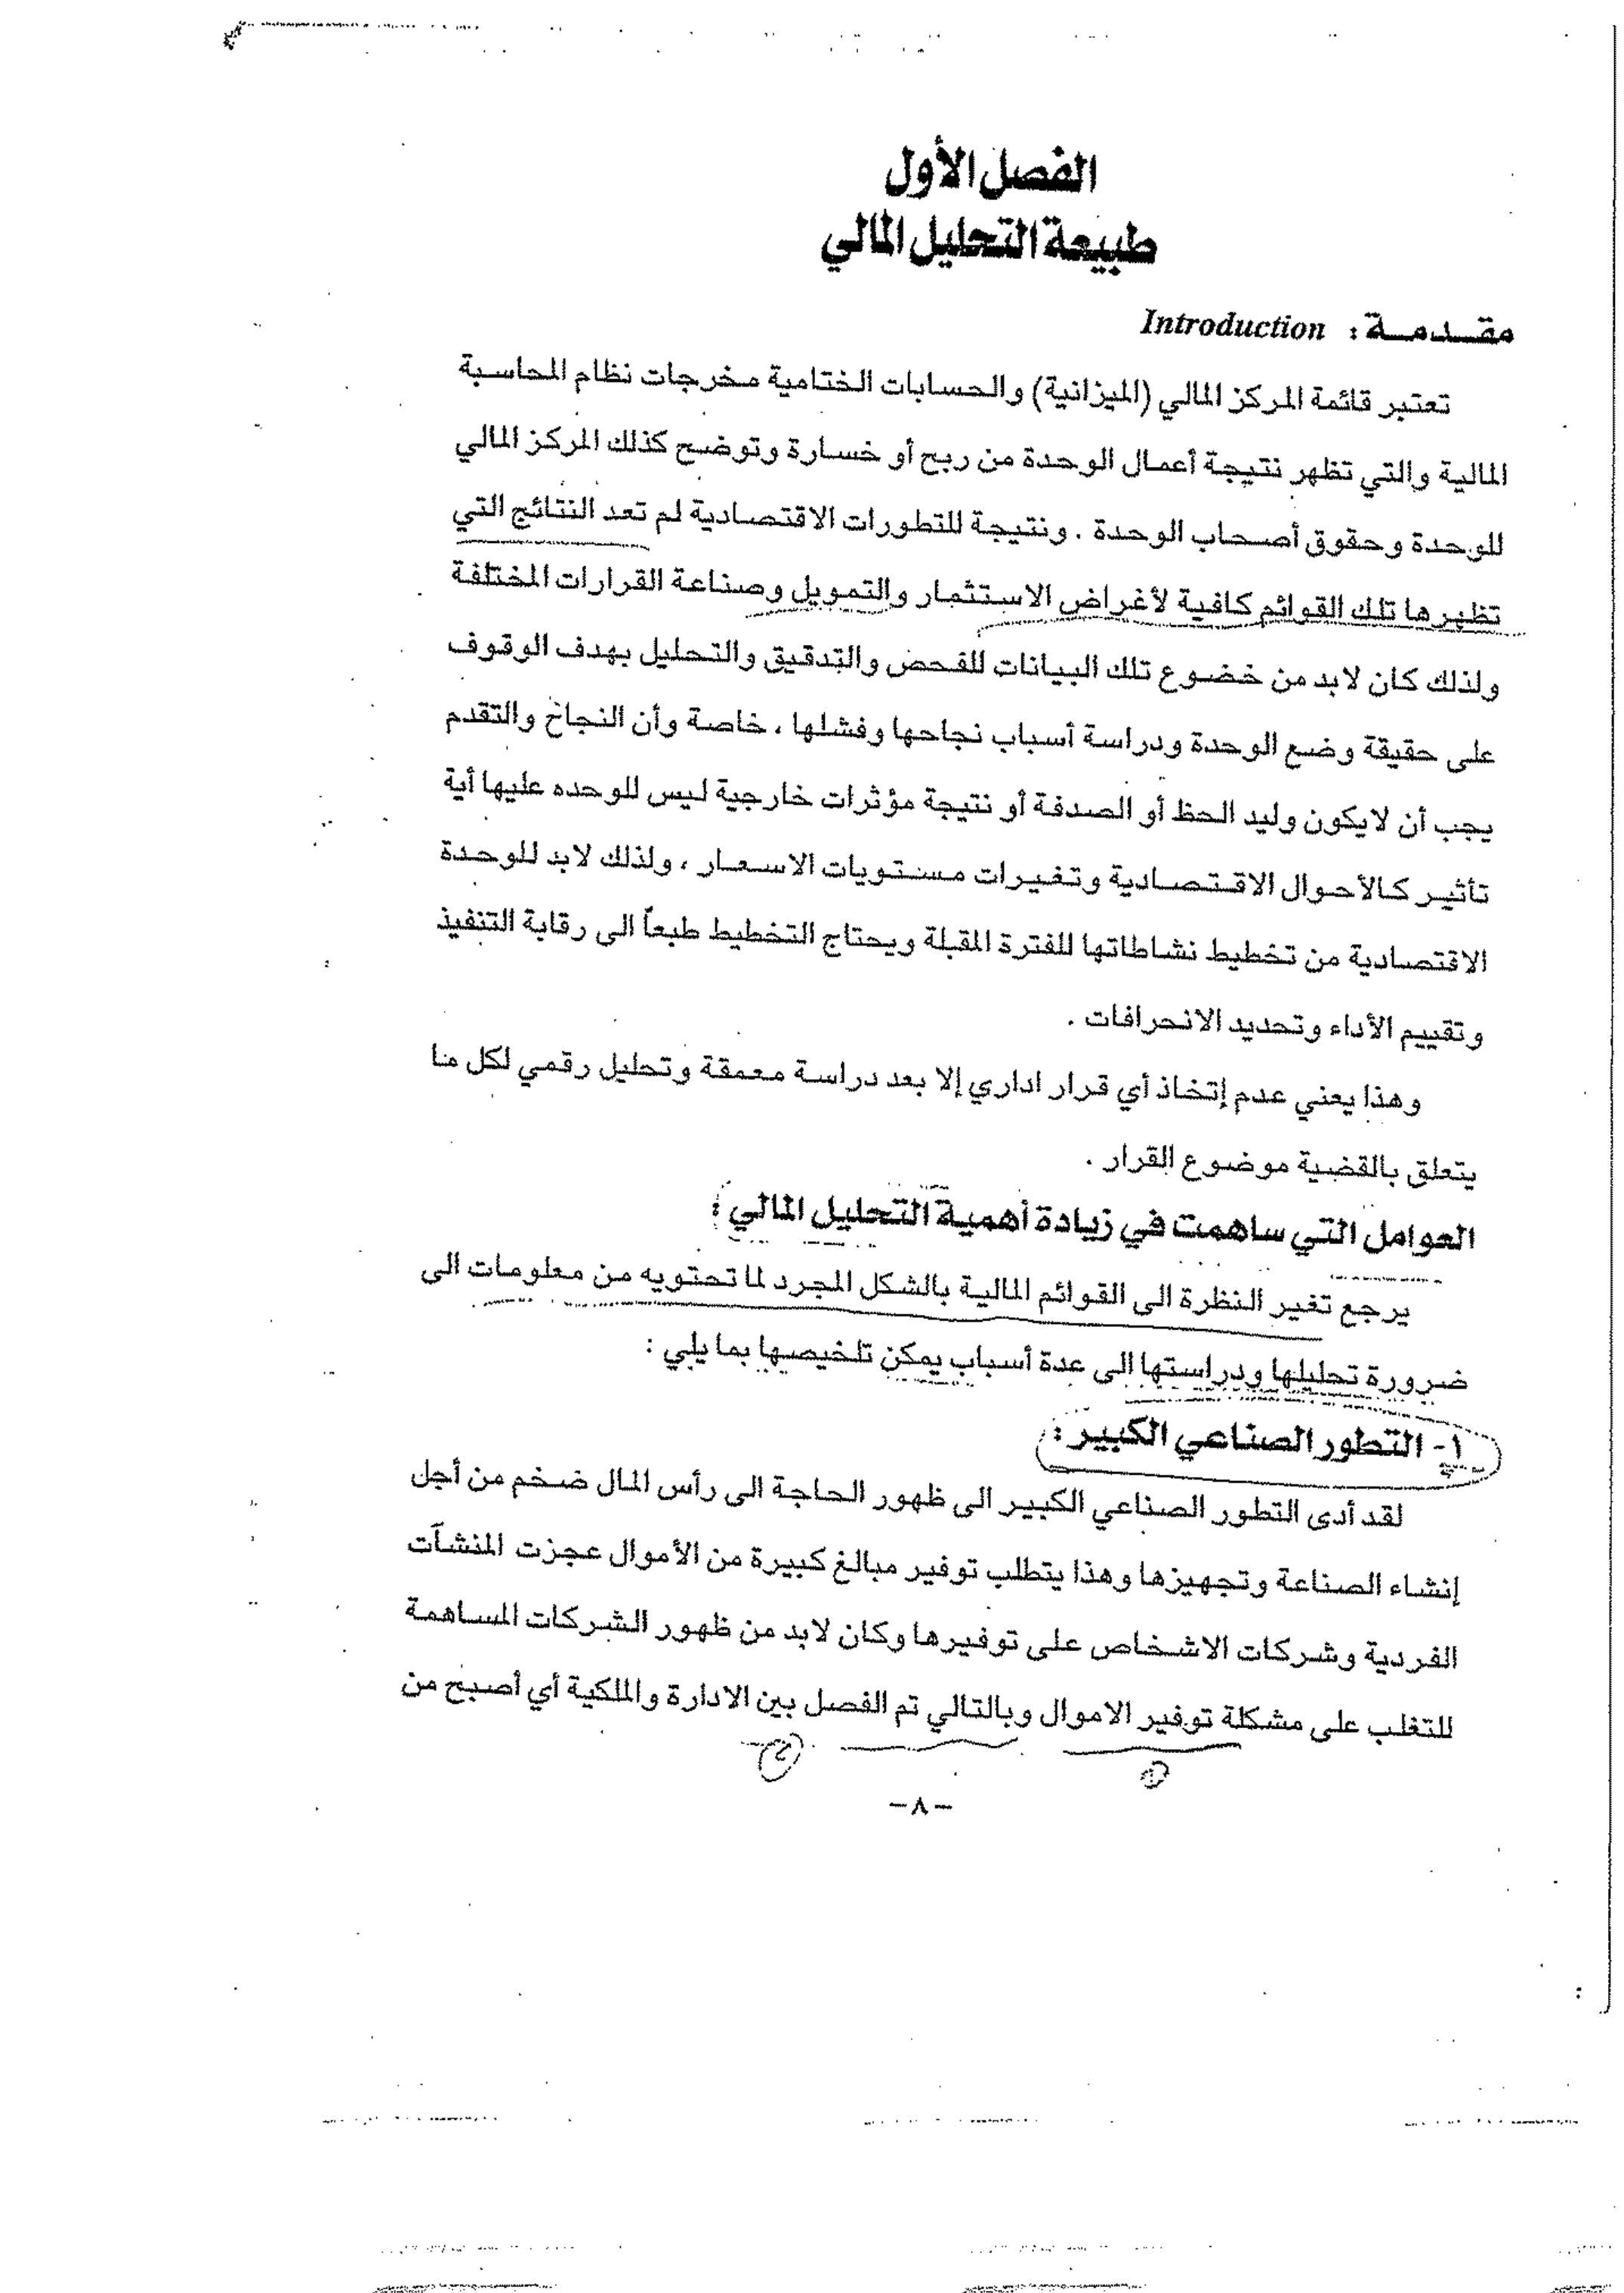 الفصل الأول
طبيعة التحليل المالي
مقدمة : Introduction
تعتبر قائمة المركز المالي (الميزانية) والحسابات الختامية مخرجات نظام المحاسبة
المالية والتي تظهر نتيجة أعمال الوحدة من ربح أو خسارة وتوضح كذلك المركز المالي
للوحدة وحقوق أصحاب الوحدة . ونتيجة للتطورات الاقتصادية لم تعد النتائج التي
تظهرها تلك القوائم كافية لأغراض الاستثمار والتمويل وصناعة القرارات المختلفة
ولذلك كان لابد من خضوع تلك البيانات للفحص والتدقيق والتحليل بهدف الوقوف
على حقيقة وضع الوحدة ودراسة أسباب نجاحها وفشلها ، خاصة وأن النجاح والتقدم
يجب أن لايكون وليد الحظ أو الصدفة أو نتيجة مؤثرات خارجية ليس للوحده عليها أية
تأثير كالأحوال الاقتصادية وتغيرات مستويات الاسعار ، ولذلك لابد للوحدة
الاقتصادية من تخطيط نشاطاتها للفترة المقبلة ويحتاج التخطيط طبعاً الى رقابة التنفيذ
وتقييم الأداء وتحديد الانحرافات .
وهذا يعني عدم إتخاذ أي قرار اداري إلا بعد دراسة معمقة وتحليل رقمي لكل ما
يتعلق بالقضية موضوع القرار .
العوامل التي ساهمت في زيادة أهمية التحليل المالي :
يرجع تغير النظرة الى القوائم المالية بالشكل المجرد لما تحتويه من معلومات الى
ضرورة تحليلها ودراستها الى عدة أسباب يمكن تلخيصها بما يلي :
١- التطور الصناعي الكبير :
لقد أدى التطور الصناعي الكبير الى ظهور الحاجة الى رأس المال ضخم من أجل
إنشاء الصناعة وتجهيزها وهذا يتطلب توفير مبالغ كبيرة من الأموال عجزت المنشآت
الفردية وشركات الاشخاص على توفيرها وكان لابد من ظهور الشركات المساهمة
للتغلب على مشكلة توفير الاموال وبالتالي تم الفصل بين الادارة والملكية أي أصبح من
-٨-